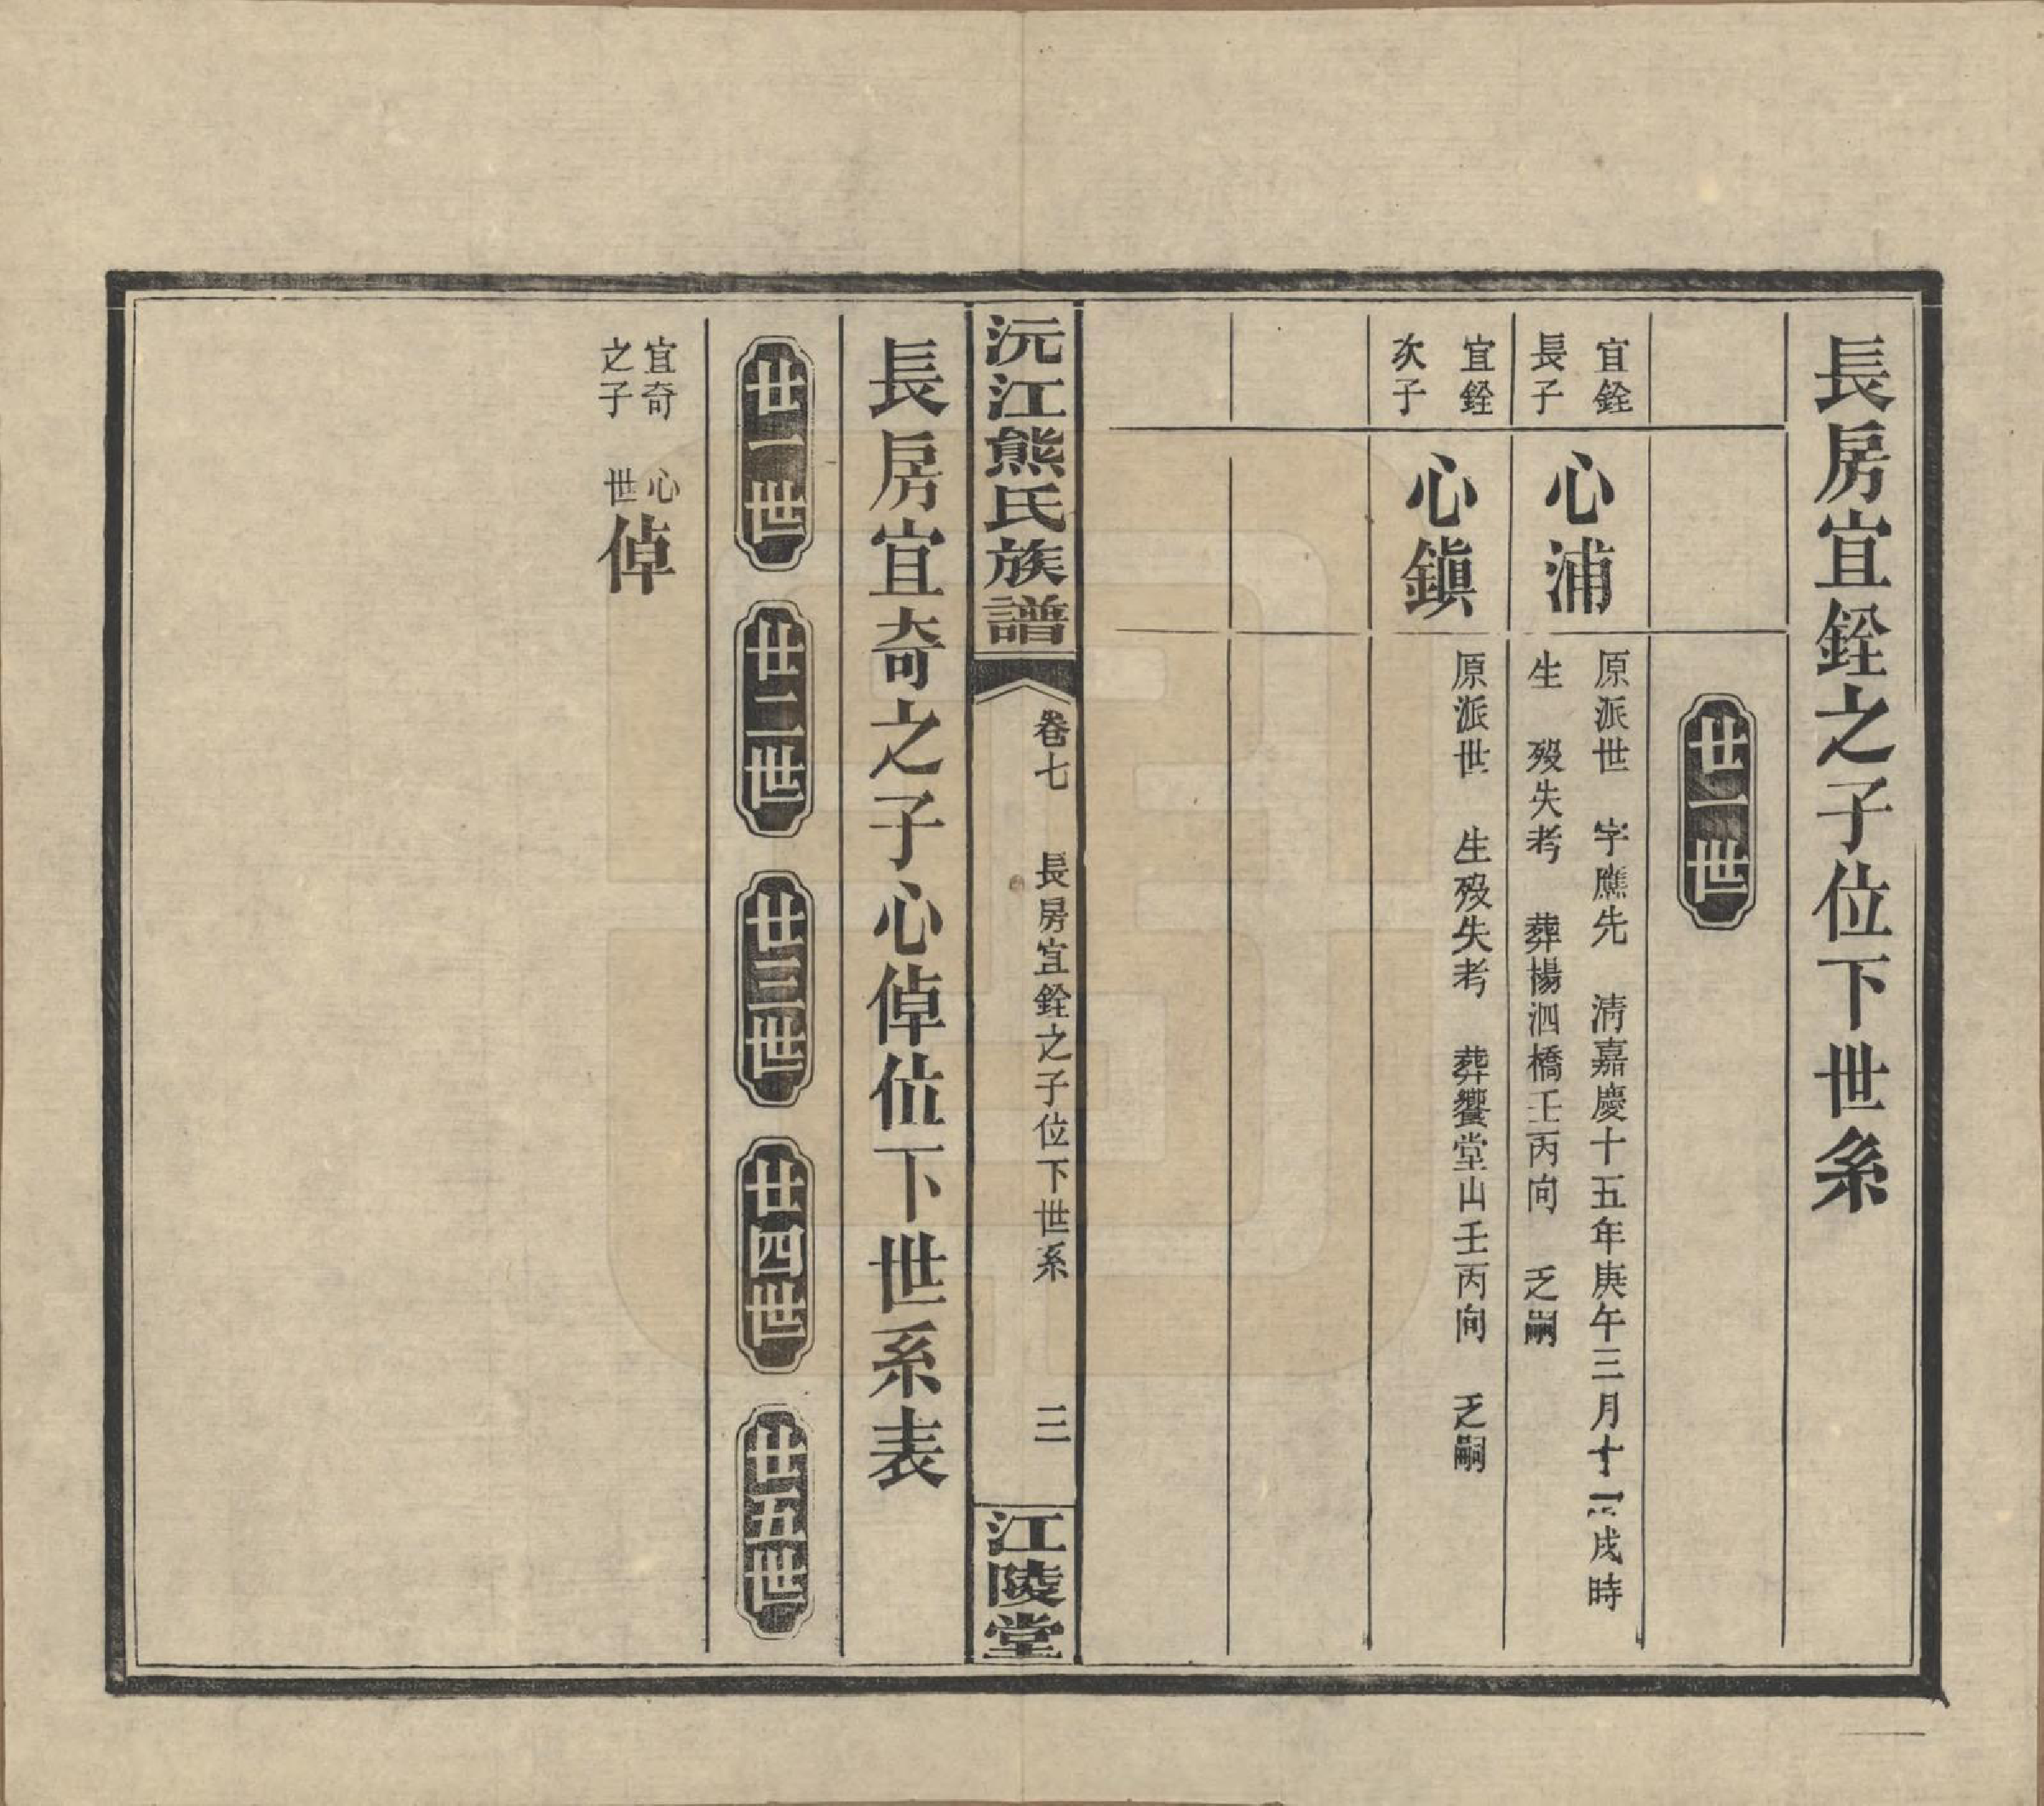 長房宜銓之子位下世系
廿一世
宜銓
長子
心浦
原派世 字鷹先 清嘉慶十五年庚午三月十二戌時
生 歿失考 葬楊泗橋壬丙向 乏嗣
宜銓
次子
心鎭
原派世 生歿失考 葬饗堂山壬丙向 乏嗣
沅江熊氏族譜
卷七 長房宜銓之子位下世系 三
江陵堂
長房宜奇之子心倬位下世系表
廿一世 廿二世 廿三世 廿四世 廿五世
宜奇
之子
心
世
倬